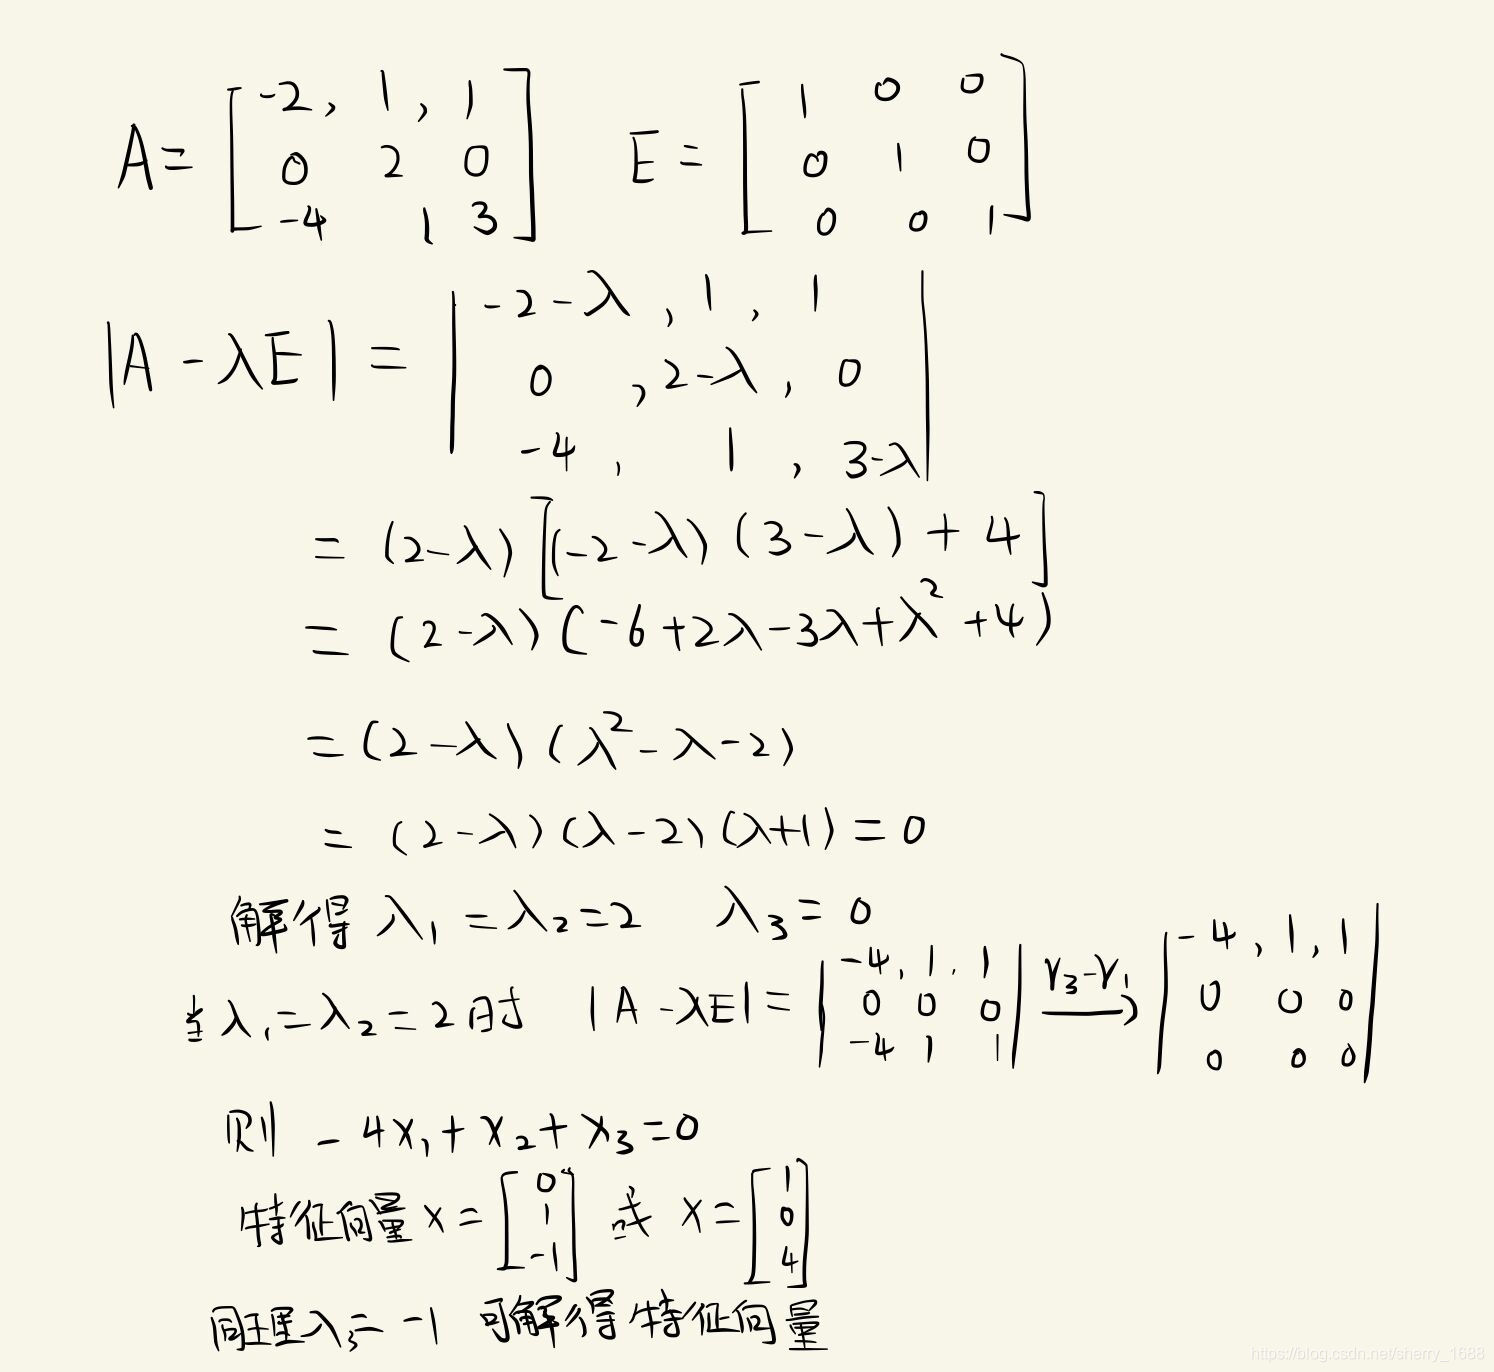 A = [-2, 1, 1; 0 2 0; -4 1 3] E = [1 0 0; 0 1 0; 0 0 1]
|A - λE| = |-2-λ, 1, 1; 0, 2-λ, 0; -4, 1, 3-λ|
= (2-λ)[(-2-λ)(3-λ)+4]
= (2-λ)(-6+2λ-3λ+λ²+4)
= (2-λ)(λ²-λ-2)
= (2-λ)(λ-2)(λ+1) = 0
解得 λ₁ = λ₂ = 2 λ₃ = 0
当 λ₁ = λ₂ = 2 时 |A - λE| = |-4, 1, 1; 0 0 0; -4 1 1| r₃-r₁→ |-4, 1, 1; 0 0 0; 0 0 0|
则 -4x₁ + x₂ + x₃ = 0
特征向量 x = [0; 1; -1] 或 x = [1; 0; 4]
同理 λ₃ = -1 可解得特征向量
https://blog.csdn.net/sherry_1688